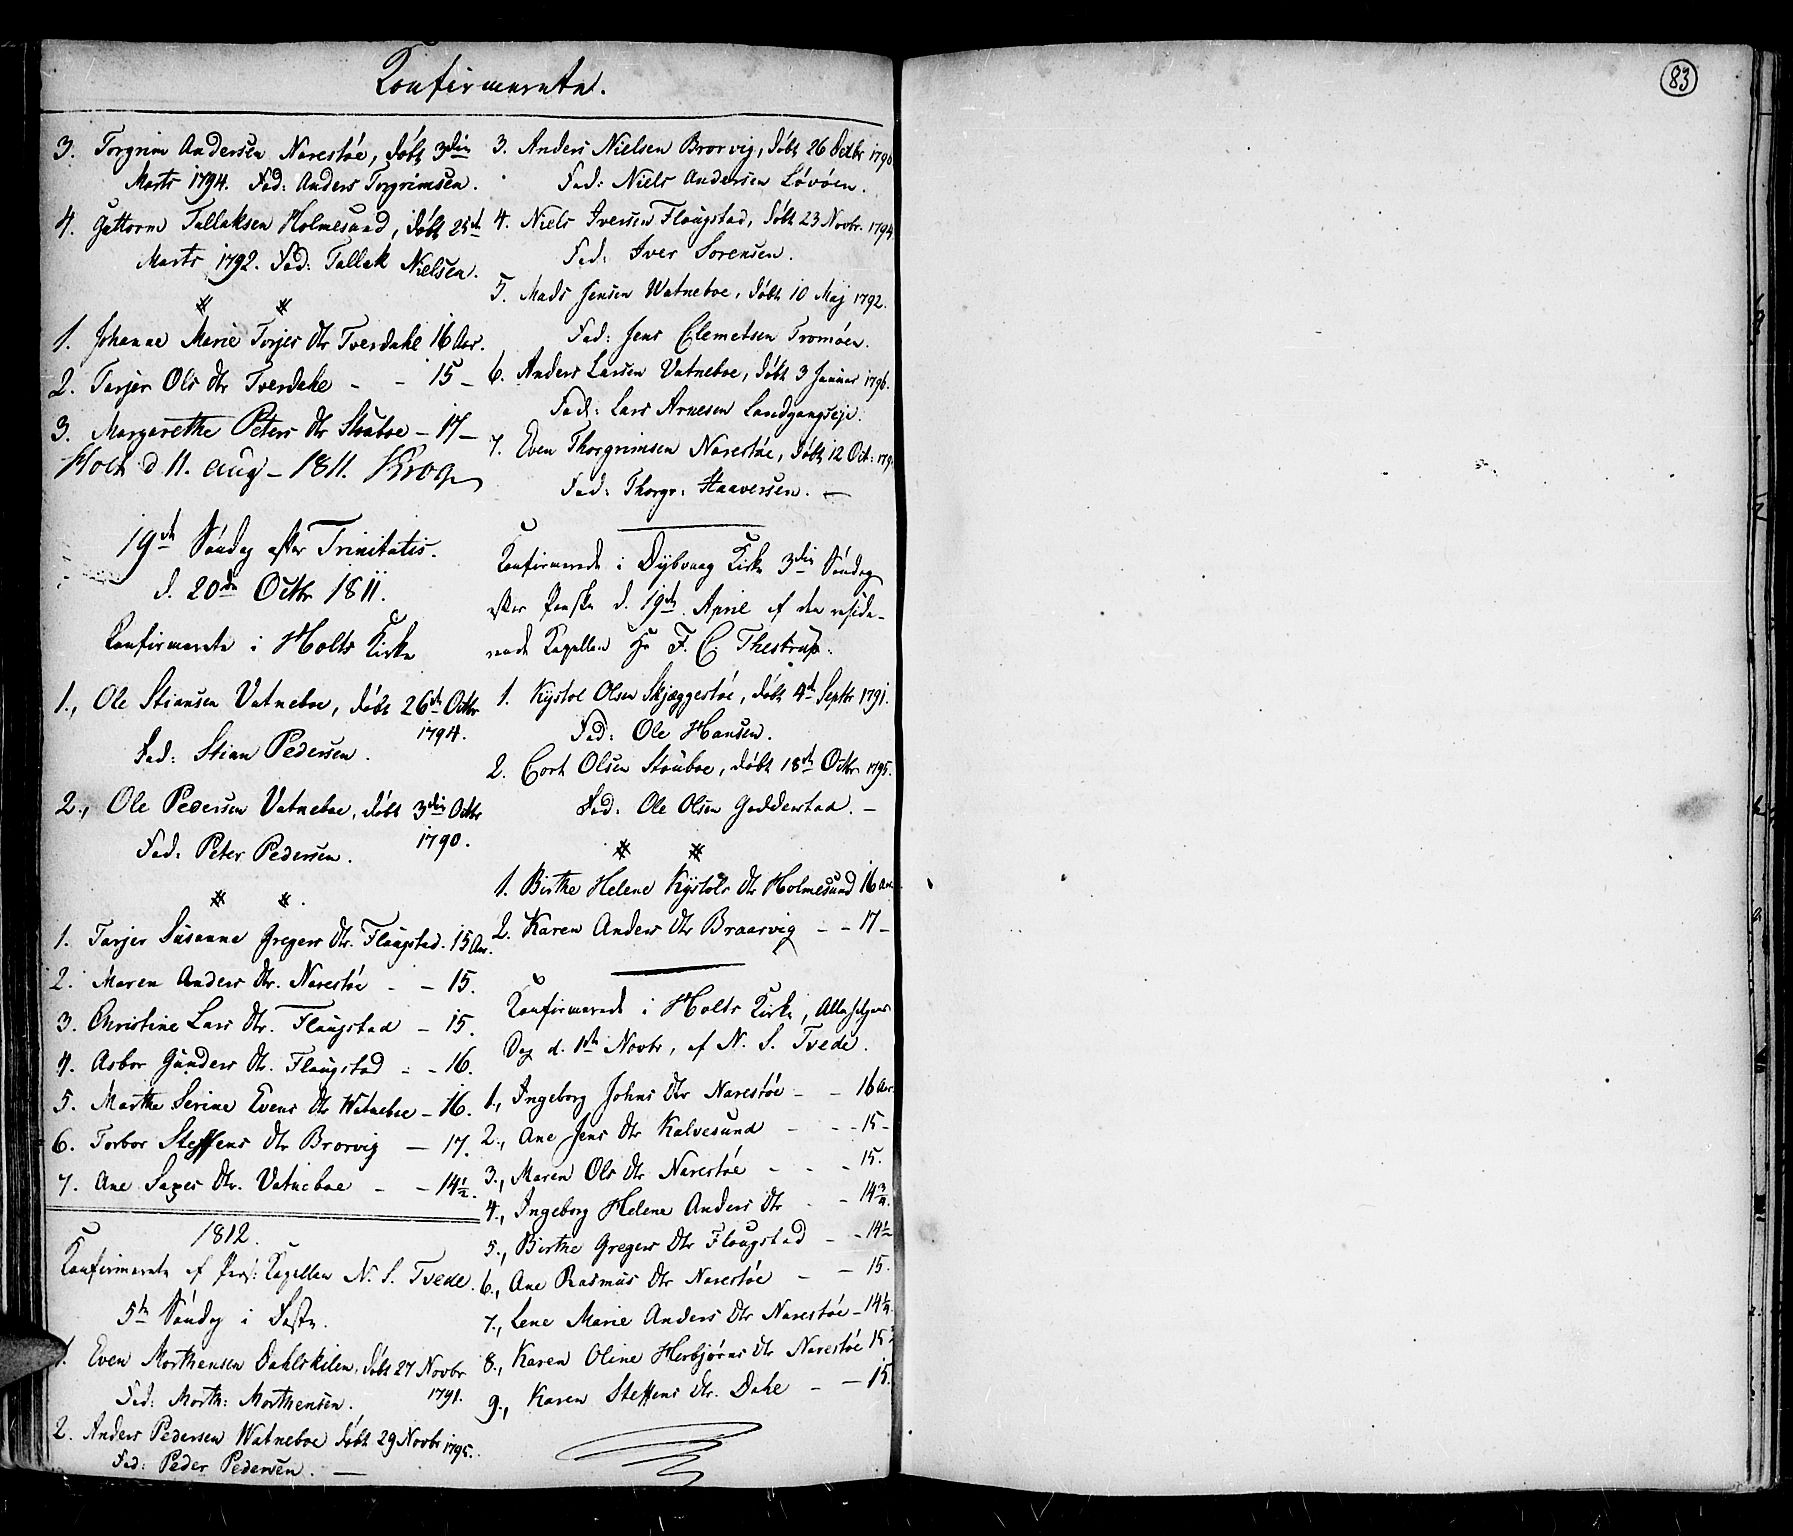 Konfirmerete.
3. Torgrim Andersen Narestøe, døbt 3die
Marts 1794. Fad: Anders Torgrimsen.
4. Guttorm Tallaksen Holmesund, døbt 25de
Marts 1792. Fad: Tallak Nielsen.
1. Johanne Marie Torjes Dtr Tverdahl 16 Aar.
2. Tarjer Ols Dtr Tverdahl - - 15 -
3. Margarethe Peters Dtr Stuboe - 17 -
Holt d 11. aug - 1811. Krog
19de Søndag efter Trinitatis.
d. 20de Octbr 1811.
Konfirmerete i Holts Kirke
1., Ole Stiansen Vatneboe, døbt 26de Octbr
1794.
Fad: Stian Pedersen.
2., Ole Pedersen Vatneboe, døbt 3die Octbr
1790.
Fad: Peter Pedersen.
1. Tarjer Susanne Gregers Dtr. Flaugstad - 15 Aar.
2. Maren Anders Dtr. Narestøe - - 15.
3. Christine Lars Dtr. Flaugstad - 15.
4. Asbor Gunders Dtr. Flaugstad - - 16.
5. Marthe Serine Evens Dtr Watneboe - 16.
6. Torbor Steffens Dtr Brorvig - 17.
7. Ane Saxes Dtr. Vatneboe - - 14½.
1812.
Konfirmerete af Pers: Kapellan N. S. Tvede.
5te Søndag i Faste.
1. Even Morthensen Dahlskilen, døbt 27 Novbr
1791.
Fad: Morth: Morthensen.
2. Anders Pedersen Watneboe døbt 29 Novbr 1795.
Fad: Peder Pedersen. -
3. Anders Nielsen Brorvig, døbt 26 Decbr 1790
Fad: Niels Andersen Løvøen.
4. Niels Iversen Flaugstad, døbt 23 Novbr. 1794
Fad: Iver Sorensen.
5. Mads Jensen Watneboe, døbt 10 Maj 1792.
Fad: Jens Clemetsen Tromøen.
6. Anders Larsen Vatneboe, døbt 3 Januar 1796.
Fad: Lars Arnesen Landgangseje.
7. Even Thorgrimsen Narestøe, døbt 12 Oct: 179
Fad: Thorgr: Haaversen. -
Konfirmerede i Dybvaag Kirke 3die Søndag
efter Paaske d. 19de April af den reside-
rende Kapellan Hr F. C. Thestrup.
1. Kystol Olsen Skjæggestøe, døbt 4de Septbr 1791.
Fad: Ole Hansen.
2. Cort Olsen Stuboe, døbt 18de Octbr 1795.
Fad: Ole Olsen Godderstad. -
1. Birthe Helene Kystols Dtr Holmesund 16 Aar
2. Karen Anders Dtr Braarvig - - 17 -
Konfirmerede i Holts Kirke, Allehelgens
Dag d. 1ste Novbr, af N. S. Tvede.
1., Ingeborg Johns Dtr Narestøe - - 16 Aar
2., Ane Jens Dtr Kalvesund - - - 15 -
3., Maren Ols Dtr Narestøe - - - 15.
4., Ingeborg Helene Anders Dtr - - 14¾.
5., Birthe Gregers Dtr Flaugstad - - 14½
6., Ane Rasmus Dtr Narestøe - - 15.
7., Lene Marie Anders Dtr Narestøe - 14¼.
8., Karen Oline Herbjørns Dtr Narestøe 15
9., Karen Steffens Dtr. Dahl - - 15.
83